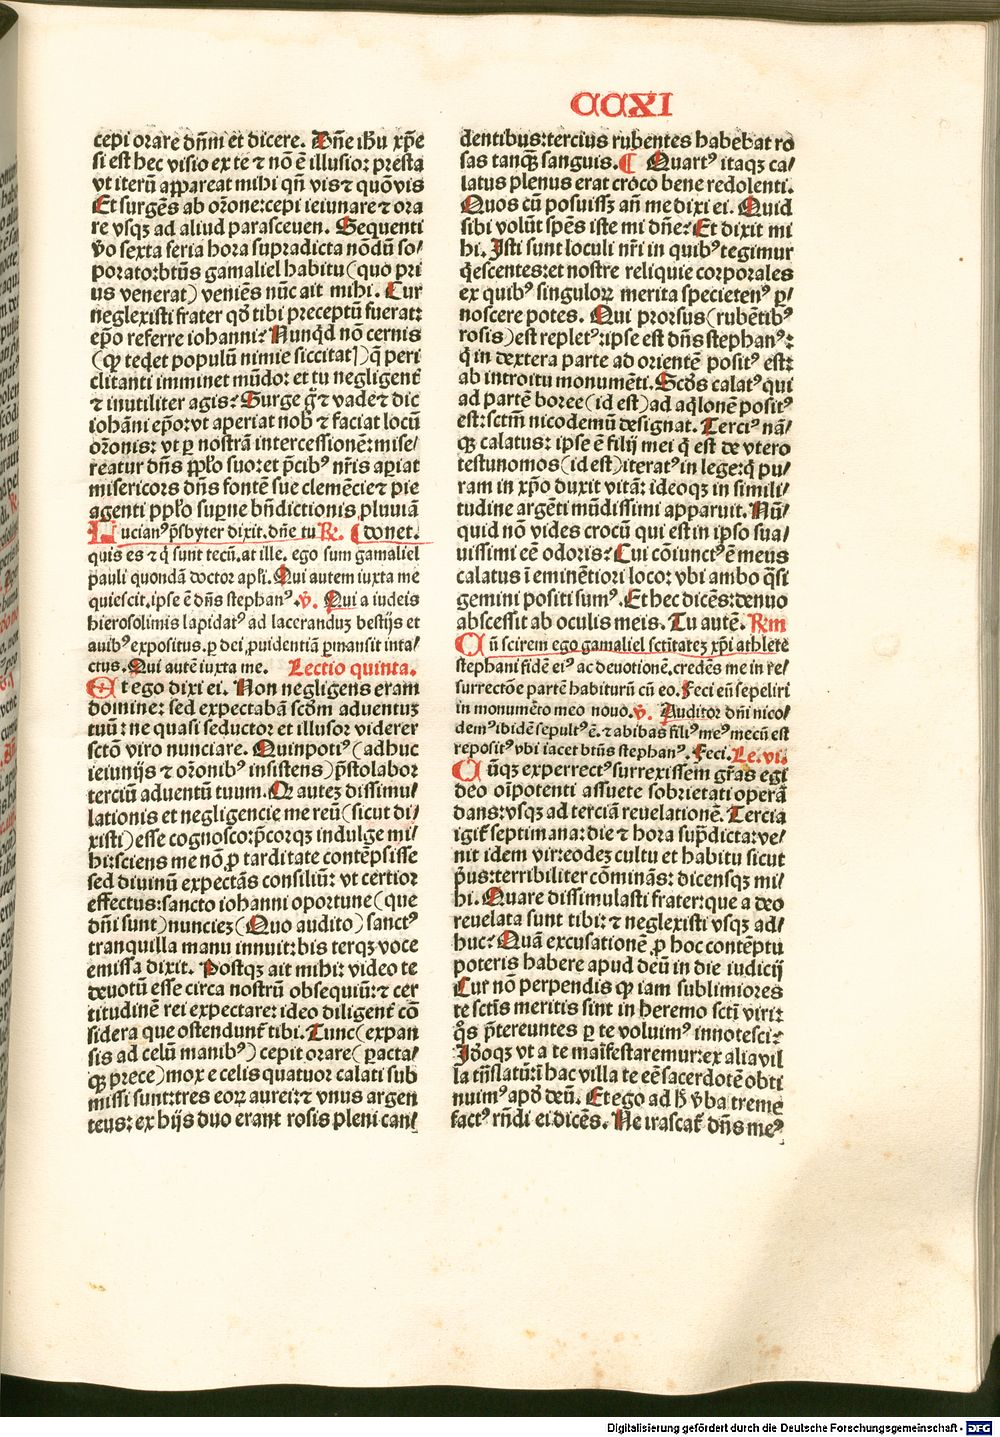 CCXI
cepi orare dn̄m et dicere. Dn̄e ih̄u xp̄e
si est hec visio ex te ⁊ nō ē illusio: presta
vt iterū appareat mihi qn̄ vis ⁊ quōvis
Et surgēs ab or̄one: cepi ieiunare ⁊ ora
re vsqꝫ ad aliud parasceuen. Sequenti
v̄o sexta feria hora supradicta nōdū so/
porato: btūs gamaliel habitu (quo pri
us venerat) veniēs nūc ait mihi. Cur
neglexisti frater qd̄ tibi preceptū fuerat:
ep̄o referre iohanni? Nunqd̄ nō cernis
(qꝫ tedet populū nimie siccitat]) q̄ peri
clitanti imminet mūdo: et tu negligent̄
⁊ inutiliter agis? Surge g̈ ⁊ vade ⁊ dic
iohāni ep̄o: vt aperiat nob̄ ⁊ faciat locū
or̄onis: vt ꝑ nostrā intercessionē: mise/
reatur dn̄s pp̄lo suo: et p̄cibꝰ nr̄is apiat
misericors dn̄s fontē sue clemēcie ⁊ pie
agenti pp̄lo supne bn̄dictionis pluuiā
Lucianꝰ p̄sbyter dixit. dn̄e tu R. Donet.
quis es ⁊ q̄ sunt tecū. at ille. ego sum gamaliel
pauli quondā doctor apl̄i. Qui autem iuxta me
quiescit. ipse ē dn̄s stephanꝰ. v̄. Qui a iudeis
hierosolimis lapidatꝰ ad laceranduꝫ bestijs et
auibꝰ expositus. ꝑ dei ꝓuidentiā ꝑmansit inta/
ctus. Qui autē iuxta me. Lectio quinta.
Et ego dixi ei. Non negligens eram
domine: sed expectabā scd̄m aduentuꝫ
tuū: ne quasi seductor et illusor viderer
sctō viro nunciare. Quinpotiꝰ (adhuc
ieiunijs ⁊ or̄onibꝰ insistens) p̄stolabor
terciū aduentū tuum. Qꝫ auteꝫ dissimu/
lationis et negligencie me reū (sicut di/
xisti) esse cognosco: p̄corqꝫ indulge mi/
hi: sciens me nō ꝓ tarditate contēpsisse
sed diuinū expectās consiliū: vt certior
effectus: sancto iohanni oportune (que
dn̄i sunt) nuncieꝫ (Quo audito) sanctꝰ
tranquilla manu innuit: bis terqꝫ voce
emissa dixit. Postqꝫ ait mihi: video te
deuotū esse circa nostrū obsequiū: ⁊ cer
titudinē rei expectare: ideo diligent̄ cō
sidera que ostendunt̄ tibi. Tunc (expan
sis ad celū manibꝰ) cepit orare (ꝑacta/
qꝫ prece) mox e celis quatuor calati sub
missi sunt: tres eoꝝ aurei: ⁊ vnus argen
teus: ex hijs duo erant rosis pleni can/
dentibus: tercius rubentes habebat ro
sas tanqꝫ sanguis. Quartꝰ itaqꝫ ca/
latus plenus erat croco bene redolenti.
Quos cū posuissꝫ an̄ me dixi ei. Quid
sibi volūt spēs iste mi dn̄e? Et dixit mi
hi. Isti sunt loculi nr̄i in quibꝰ tegimur
q̄escentes: et nostre reliquie corporales
ex quibꝰ singuloꝝ merita specietenꝰ p̄/
noscere potes. Qui prorsus (rubētibꝰ
rosis) est repletꝰ: ipse est dn̄s stephanꝰ:
q̄ in dextera parte ad orientē positꝰ est:
ab introitu monumēti. Scd̄s calatꝰ qui
ad partē boree (id est) ad aq̄lonē positꝰ
est: sctm̄ nicodemū designat. Terciꝰ nā/
qꝫ calatus: ipse ē filij mei q̄ est de vtero
testunomos (id est) iteratꝰ in lege: q̄ pu/
ram in xp̄o duxit vitā: ideoqꝫ in simili/
tudine argēti mūdissimi apparuit. Nū/
quid non vides crocū qui est in ipso sua/
uissimi eē odoris? Cui cōiunctꝰ ē meus
calatus ī eminētiori loco: vbi ambo q̄si
gemini positi sumꝰ. Et hec dicēs: denuo
abscessit ab oculis meis. Tu autē. Rm
Cū scirem ego gamaliel sctitateꝫ xp̄i athlete
stephani fidē eiꝰ ac deuotionē. credēs me in re/
surrectōe partē habiturū cū eo. Feci eū sepeliri
in monumēto meo nouo. v̄. Auditor dn̄i nico/
demꝰ ibidē sepultꝰ ē. ⁊ abibas filiꝰ meꝰ mecū est
repositꝰ vbi iacet btūs stephanꝰ. Feci. Le. vi.
Cūqꝫ experrectꝰ surrexissem gr̄as egi
deo oīpotenti assuete sobrietati operā
dans: vsqꝫ ad terciā reuelationē. Tercia
igit̄ septimana: die ⁊ hora sup̄dicta: ve/
nit idem vir: eodeꝫ cultu et habitu sicut
p̄us: terribiliter cōminās: dicensqꝫ mi/
hi. Quare dissimulasti frater: que a deo
reuelata sunt tibi: ⁊ neglexisti vsqꝫ ad/
huc? Quā excusationē ꝓ hoc contēptu
poteris habere apud deū in die iudicij
Cur nō perpendis qꝫ iam sublimiores
te sctīs meritis sint in heremo sctī viri:
q̄s p̄tereuntes ꝑ te voluimꝰ innotesci?
Id̄oqꝫ vt a te maīfestaremur: ex alia vil
la trn̄slatū: ī hac villa te eē sacerdotē obti
nuimꝰ apd̄ deū. Et ego ad h̄ v̄ba treme
factꝰ rn̄di ei dicēs. Ne irascat̄ dn̄s meꝰ
Digitalisierung gefördert durch die Deutsche Forschungsgemeinschaft - DFG